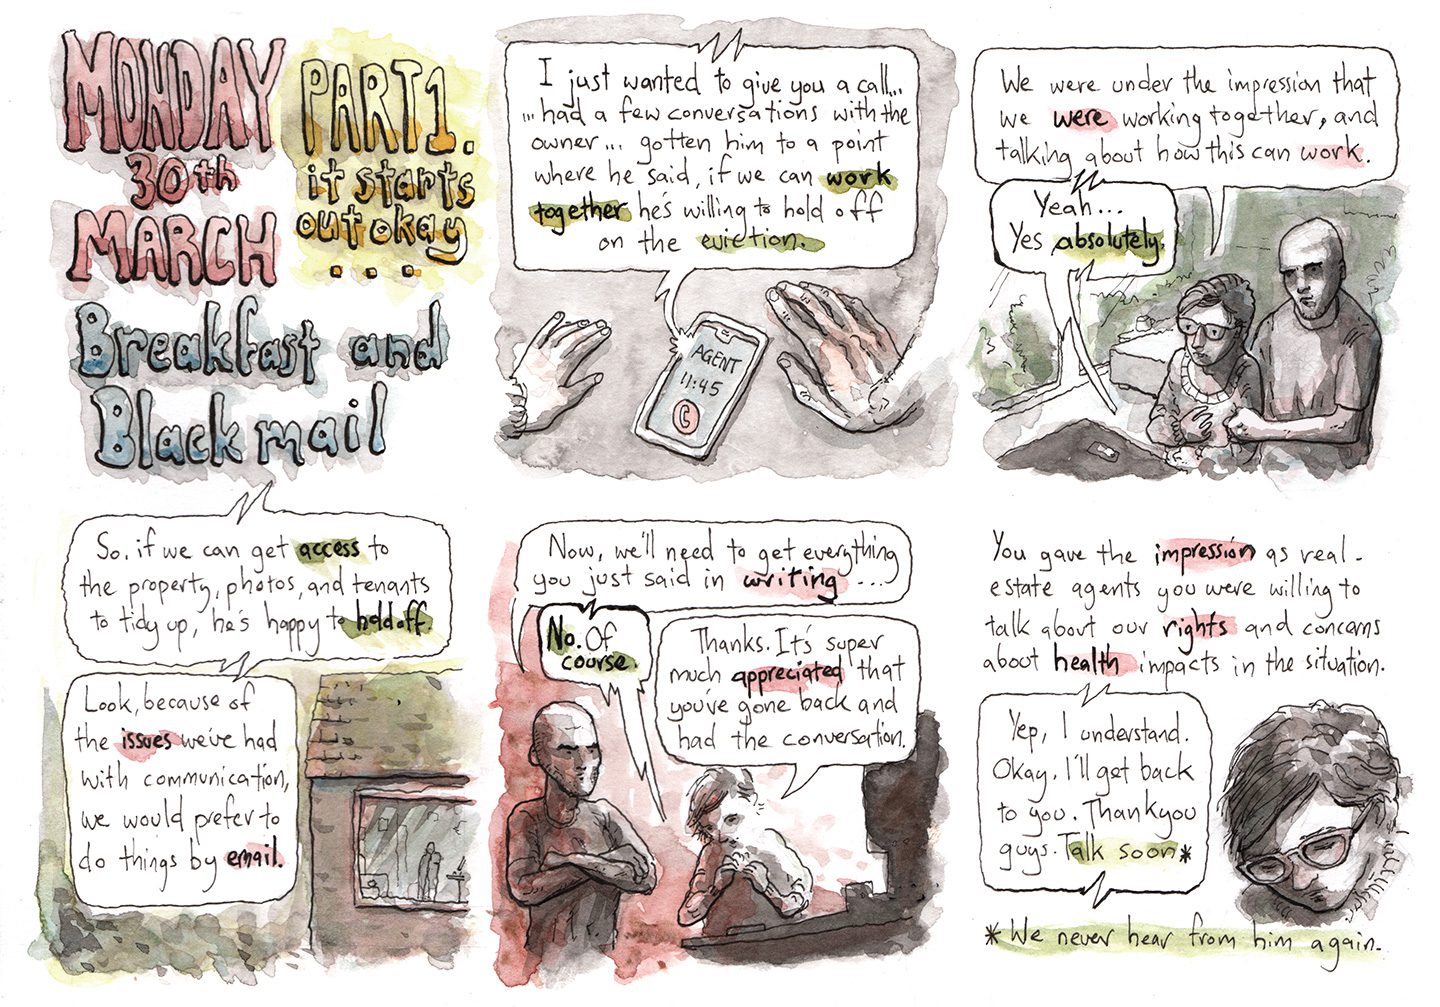 MONDAY
30th
MARCH
PART 1.
it starts
out okay
...
Breakfast and
Blackmail
I just wanted to give you a call...
...had a few conversations with the
owner... gotten him to a point
where he said, if we can work
together he's willing to hold off
on the eviction.
AGENT
11:45
We were under the impression that
we were working together, and
talking about how this can work.
Yeah...
Yes absolutely.
So, if we can get access to
the property, photos, and tenants
to tidy up, he's happy to hold off.
Look, because of
the issues we've had
with communication,
we would prefer to
do things by email.
Now, we'll need to get everything
you just said in writing...
No. Of
course.
Thanks. It's super
much appreciated that
you've gone back and
had the conversation.
You gave the impression as real-
estate agents you were willing to
talk about our rights and concerns
about health impacts in the situation.
Yep, I understand.
Okay. I'll get back
to you. Thankyou
guys. Talk soon*
* We never hear from him again.